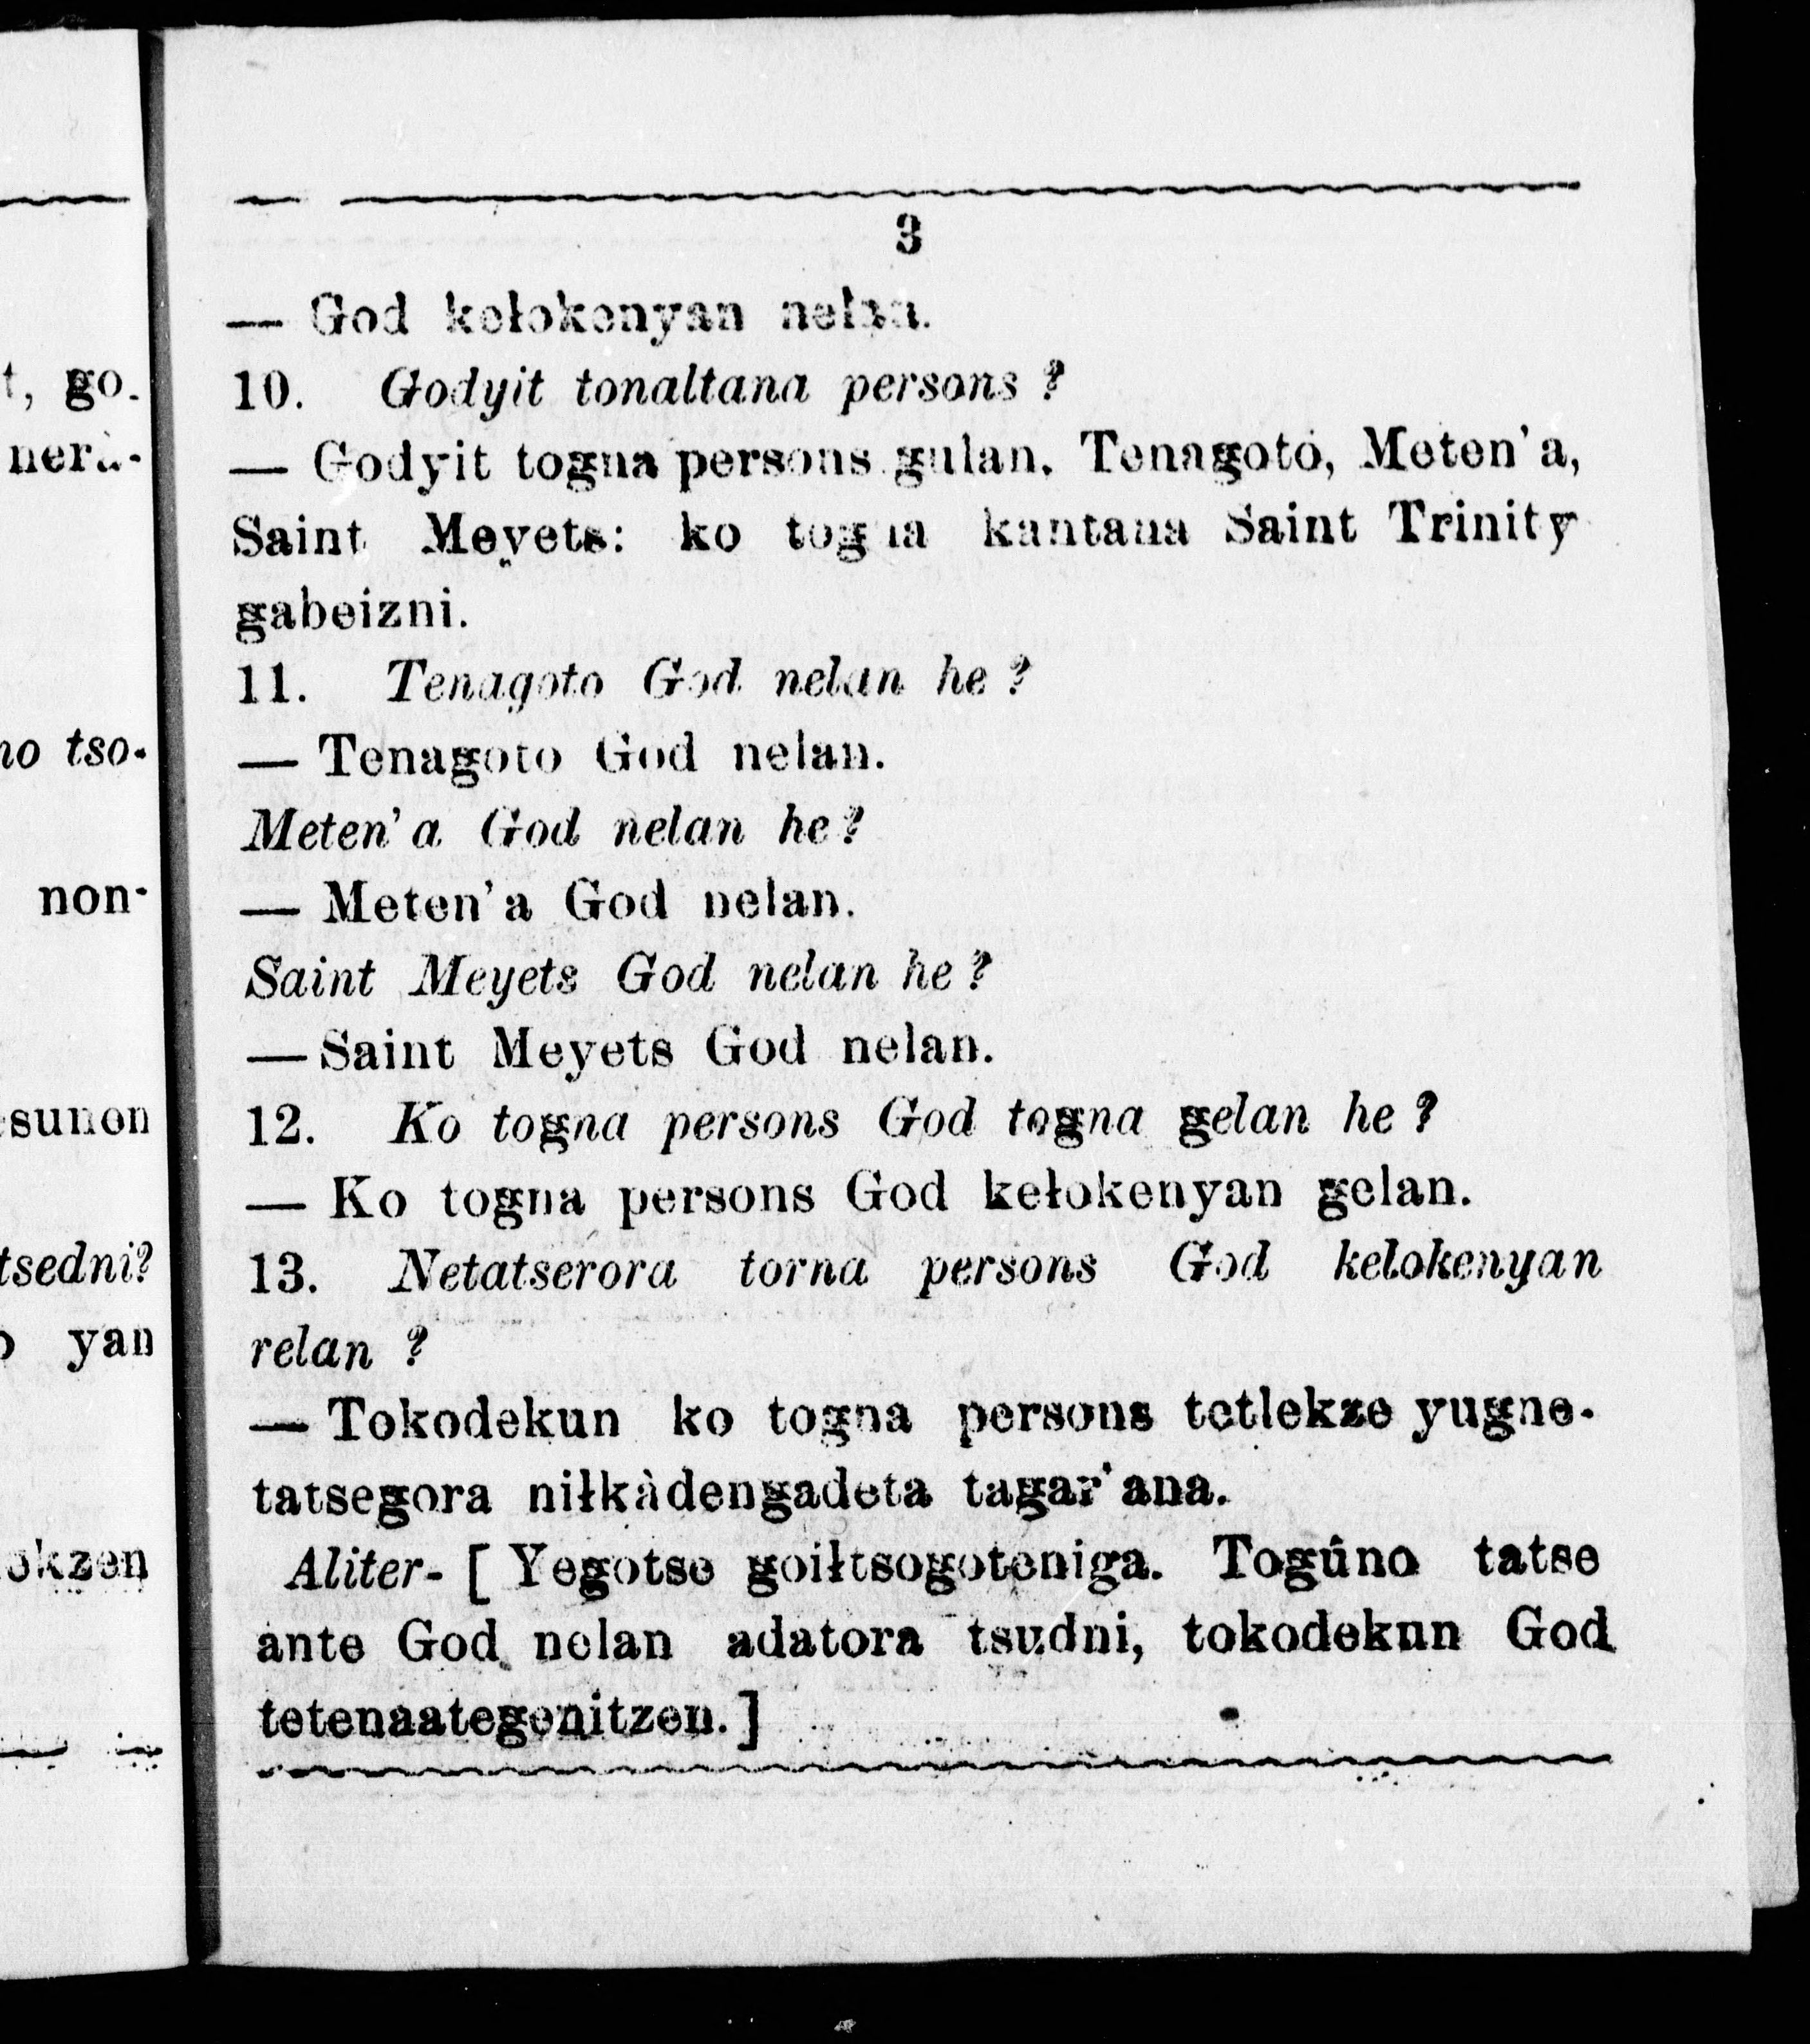 3
— God kełokenyan nelan.
10. Godyit tonaltana persons ?
— Godyit togna persons gulan. Tenagoto, Meten'a,
Saint Meyets: ko togna kantana Saint Trinity
gabeizni.
11. Tenagoto God nelan he ?
— Tenagoto God nelan.
Meten'a God nelan he ?
— Meten'a God nelan.
Saint Meyets God nelan he ?
— Saint Meyets God nelan.
12. Ko togna persons God togna gelan he ?
— Ko togna persons God kełokenyan gelan.
13. Netatserora torna persons God kelokenyan
relan ?
— Tokodekun ko togna persons tetlekze yugne-
tatsegora niłkàdengadeta tagar'ana.
Aliter- [ Yegotse goiłtsogoteniga. Togûno tatse
ante God nelan adatora tsudni, tokodekun God
tetenaategenitzen. ]
t, go.
no tso-
non-
sunon
tsedni?
yan
okzen